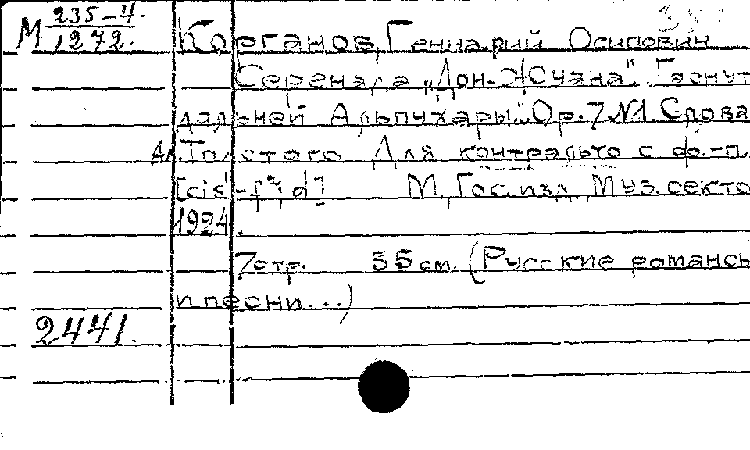 М 235-4
1272.
Корганов, Геннарий Осипович
Серенада „Дон-Жуана". Гаснут
дальней Альпухары... Op. 7 №1. Слова
Ал. Толстого. Для контральто с ф.-п.
М., Гос. изд. Муз. секто
1924.
7 стр. 35 см. (Русские романсы
и песни...)
2441.